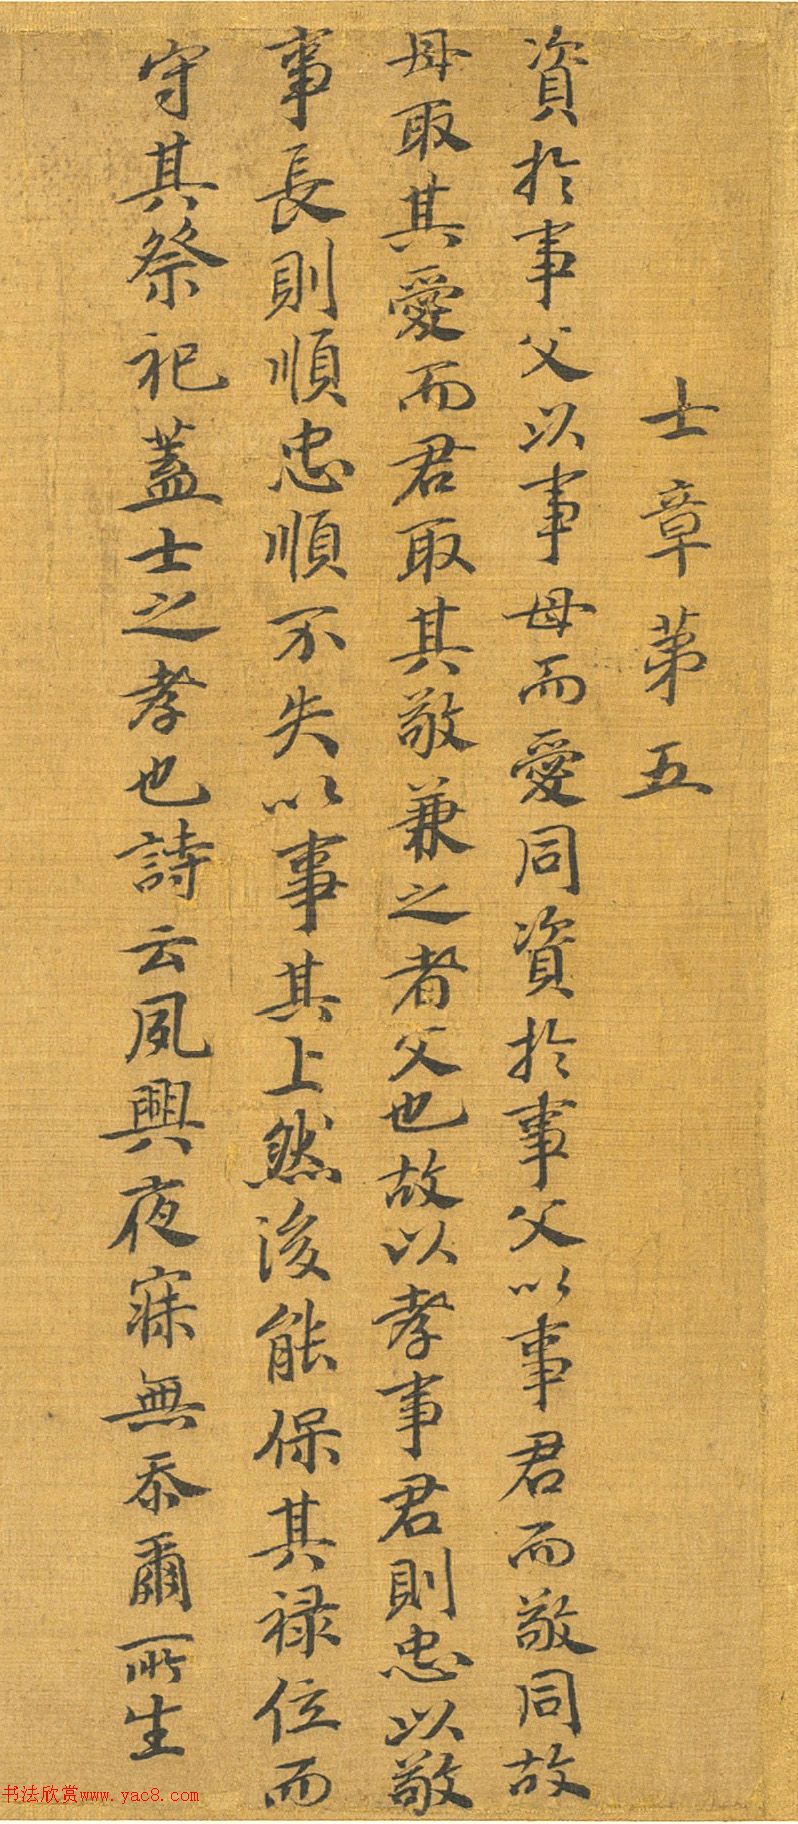 士章第五
資於事父以事母而愛同資於事父以事君而敬同故
母取其愛而君取其敬兼之者父也故以孝事君則忠以敬
事長則順忠順不失以事其上然後能保其祿位而
守其祭祀蓋士之孝也詩云夙興夜寐無忝爾所生
书法欣赏www.yac8.com